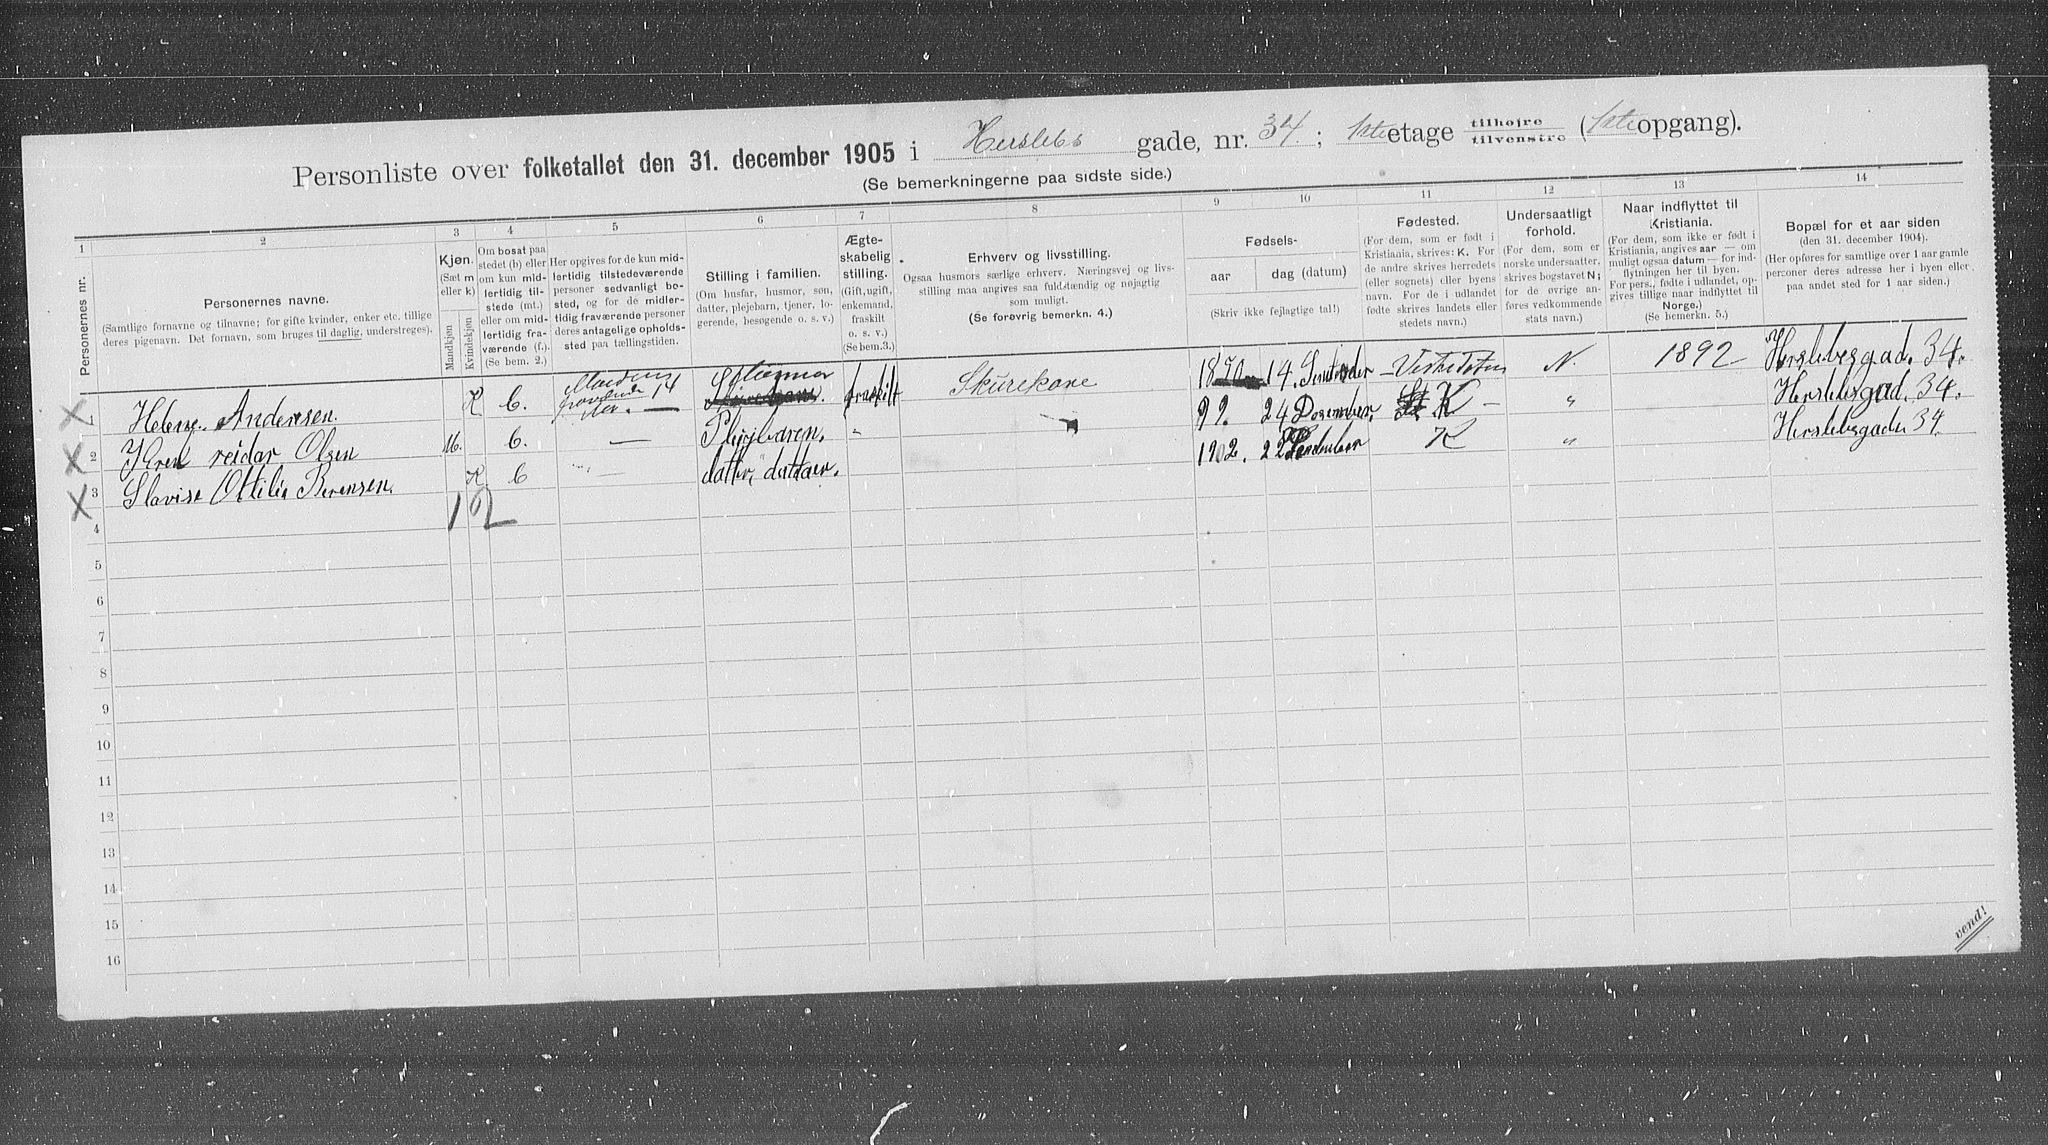 Personliste over folketallet den 31. december 1905 i Herslebs gade, nr. 34. ; 1ste etage tilhøjre tilvenstre (1ste opgang).
(Se bemerkningerne paa sidste side.)
1 2 3 4 5 6 7 8 9 10 11 12 13 14
Personernes nr.
Personernes navne.
(Samtlige fornavne og tilnavne; for gifte kvinder, enker etc. tillige
deres pigenavn. Det fornavn, som bruges til daglig, understreges).
Kjøn.
(Sæt m
eller k)
Mandkjøn
Kvindekjøn
Om bosat paa
stedet (b) eller
om kun mid-
lertidig til-
stede (mt.)
eller om mid-
lertidig fra-
værende (f.).
(Se bem. 2.)
Her opgives for de kun mid-
lertidig tilstedeværende
personer sedvanlig bo-
sted, og for de midler-
tidig fraværende personer
deres antagelige opholds-
sted paa tællingstiden.
Stilling i familien.
(Om husfar, husmor, søn,
datter, plejebarn, tjener, lo-
gerende, besøgende o. s. v.)
Ægte-
skabelig
stilling.
(Gift, ugift,
enkemand,
fraskilt
o. s. v.)
(Se bem.3.)
Erhverv og livsstilling.
Ogsaa husmors særlige erhverv. Næringsvej og livs-
stilling maa angives saa fuldstændig og nøjagtig
som muligt.
(Se forøvrig bemerkn. 4.)
Fødsels-
aar
dag (datum)
(Skriv ikke fejlagtige tal!)
Fødested.
(For dem, som er født i
Kristiania, skrives: K. For
de andre skrives herredets
(eller sognets) eller byens
navn. For de i udlandet
fødte skrives landets eller
stedets navn.)
Undersaatligt
forhold.
(For dem, som er
norske undersaatter,
skrives bogstavet N;
for de øvrige an-
føres vedkommende
stats navn.)
Naar indflyttet til
Kristiania.
(For dem, som ikke er født i
Kristiania, angives aar — om
muligt ogsaa datum — for ind-
flytningen her til byen.
For pers., fødte i udlandet, op-
gives tillige naar indflyttet til
Norge.)
(Se bemerkn. 5.)
Bopæl for et aar siden
(den 31. december 1904).
(Her opføres for samtlige over 1 aar gamle
personer deres adresse her i byen eller
paa andet sted for 1 aar siden.)
X 1 Helene Andersen. K b. 14 fraskilt Skurekone 1850 14. N. 1892 Herslebsgad. 34.
X 2 reidar Olsen M. b. — Plejebaren. - 99. 24 Desember K — " Herslebsgad. 34.
X 3 Ottilie Berensen. K b — datter, dattaer. 1902. 22 K " Herslebsgade 34
4 1 2
5
6
7
8
9
10
11
12
13
14
15
16
vend!